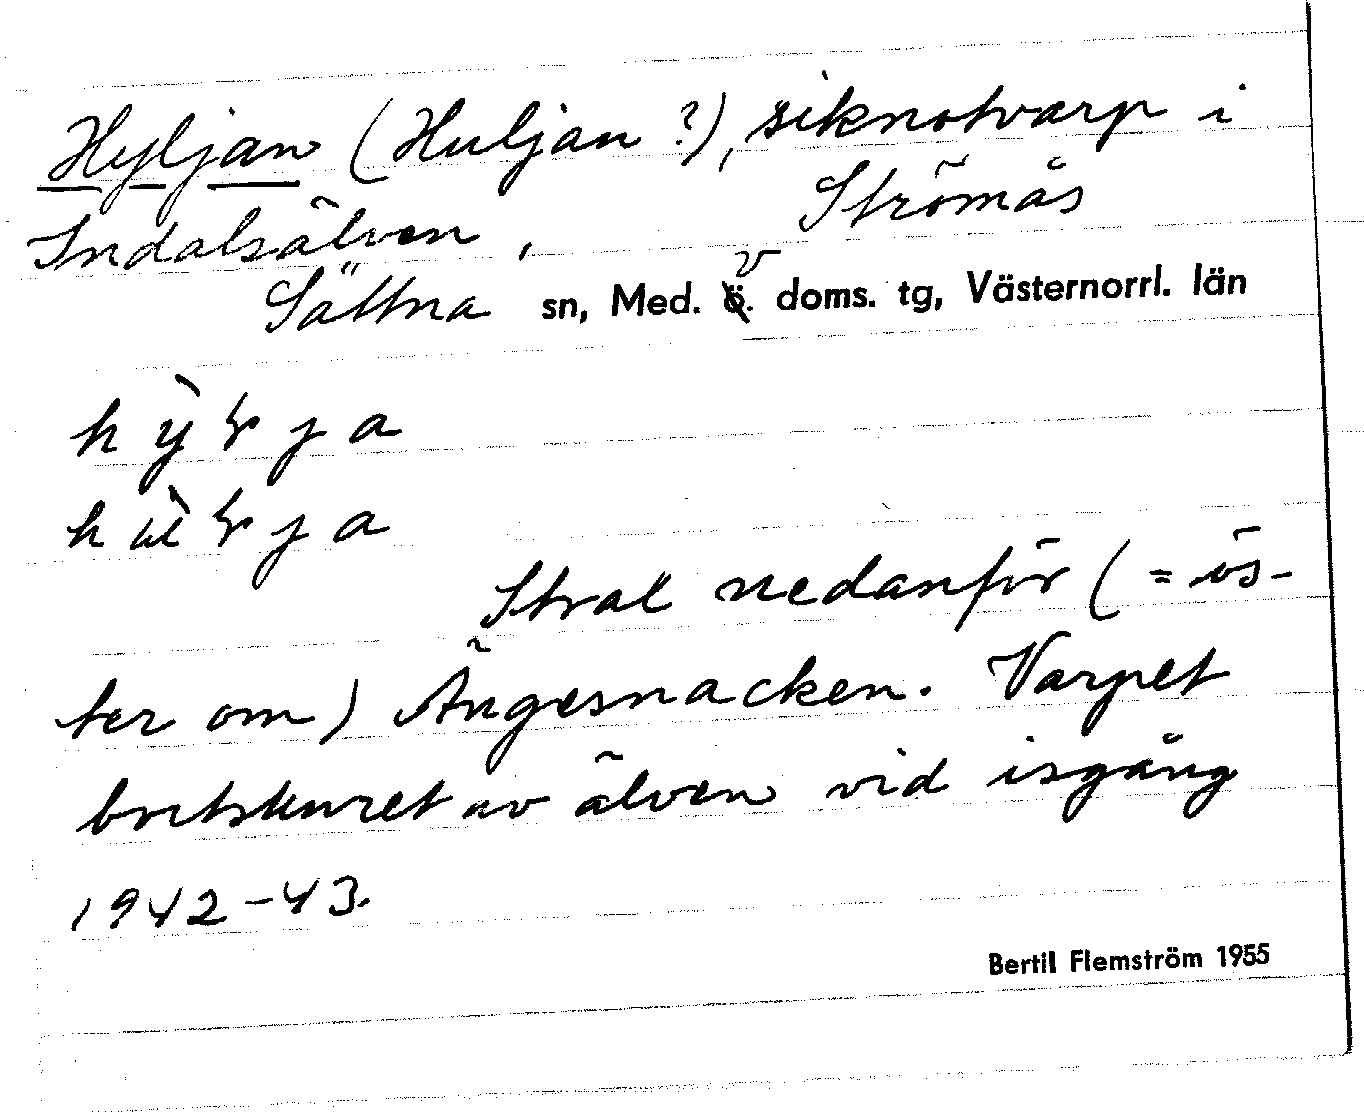 Hyljan (Huljan?), siknotvarp i
Indalsälven, Strömås
Sättna sn, Med. v. doms. tg, Västernorrl. län
hỳɽja
hùɽja
Stral nedanför (= ös-
ter om) Ängesnacken. Varpet
bortskuret av älven vid isgång
1942-43.
Bertil Flemström 1955